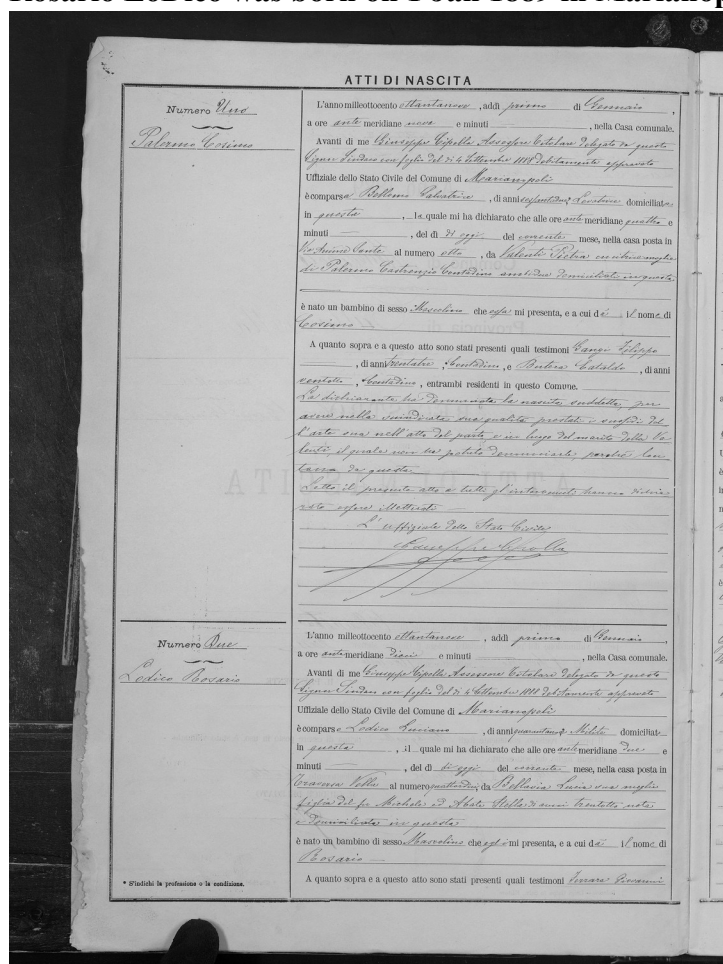 Rosario LoDico was born on 1 Jan 1889 in Marianop
ATTI DI NASCITA
Numero Uno
Palermo Cosimo
L'anno milleottocento ottantanove, addì primo di Gennaio,
a ore anti meridiane nove e minuti , nella Casa comunale.
Avanti di me Giuseppe Cipolla Assessore delegato da questo
Signor Sindaco con foglio del dì 4 Settembre 1888 debitamente approvato
Uffiziale dello Stato Civile del Comune di Marianopoli
è comparsa Bellomo Salvatrice, di anni Levatrice domiciliata
in questa, la quale mi ha dichiarato che alle ore anti meridiane quattro e
minuti — , del dì di oggi del corrente mese, nella casa posta in
al numero otto, da Valenti Pietra moglie
di Palermo Contadino domiciliati in questa
è nato un bambino di sesso Mascolino che essa mi presenta, e a cui dà il nome di
Cosimo
A quanto sopra e a questo atto sono stati presenti quali testimoni Filippo
, di anni trentatre, Contadino, e Butera Cataldo, di anni
Contadino, entrambi residenti in questo Comune.
La dichiarante ha denunciato la nascita suddetta, per
avere nella qualità prestati i sussidi del
l'arte sua nell'atto del parto, e in luogo del marito della Va
lenti, il quale non ha potuto denunciarla perchè lon
tano da questa
Letto il presente atto a tutti gl'intervenuti hanno dichia
rato essere illetterati
L'uffiziale dello Stato Civile
Giuseppe Cipolla
Numero Due
Lodico Rosario
L'anno milleottocento ottantanove, addì primo di Gennaio,
a ore anti meridiane dieci e minuti , nella Casa comunale.
Avanti di me Giuseppe Cipolla Assessore delegato da questo
Signor Sindaco con foglio del dì 4 Settembre 1888 debitamente approvato
Uffiziale dello Stato Civile del Comune di Marianopoli
è comparso Lodico Luciano, di anni domiciliato
in questa, il quale mi ha dichiarato che alle ore anti meridiane due e
minuti — , del dì di oggi del corrente mese, nella casa posta in
Traversa al numero quattordici, da Bellavia Lucia sua moglie
figlia del fu Michele ed Abate Stella di anni trentotto nata
e domiciliata in questa
è nato un bambino di sesso Mascolino che egli mi presenta, e a cui dà il nome di
Rosario
A quanto sopra e a questo atto sono stati presenti quali testimoni Giovanni
* S'indichi la professione o la condizione.